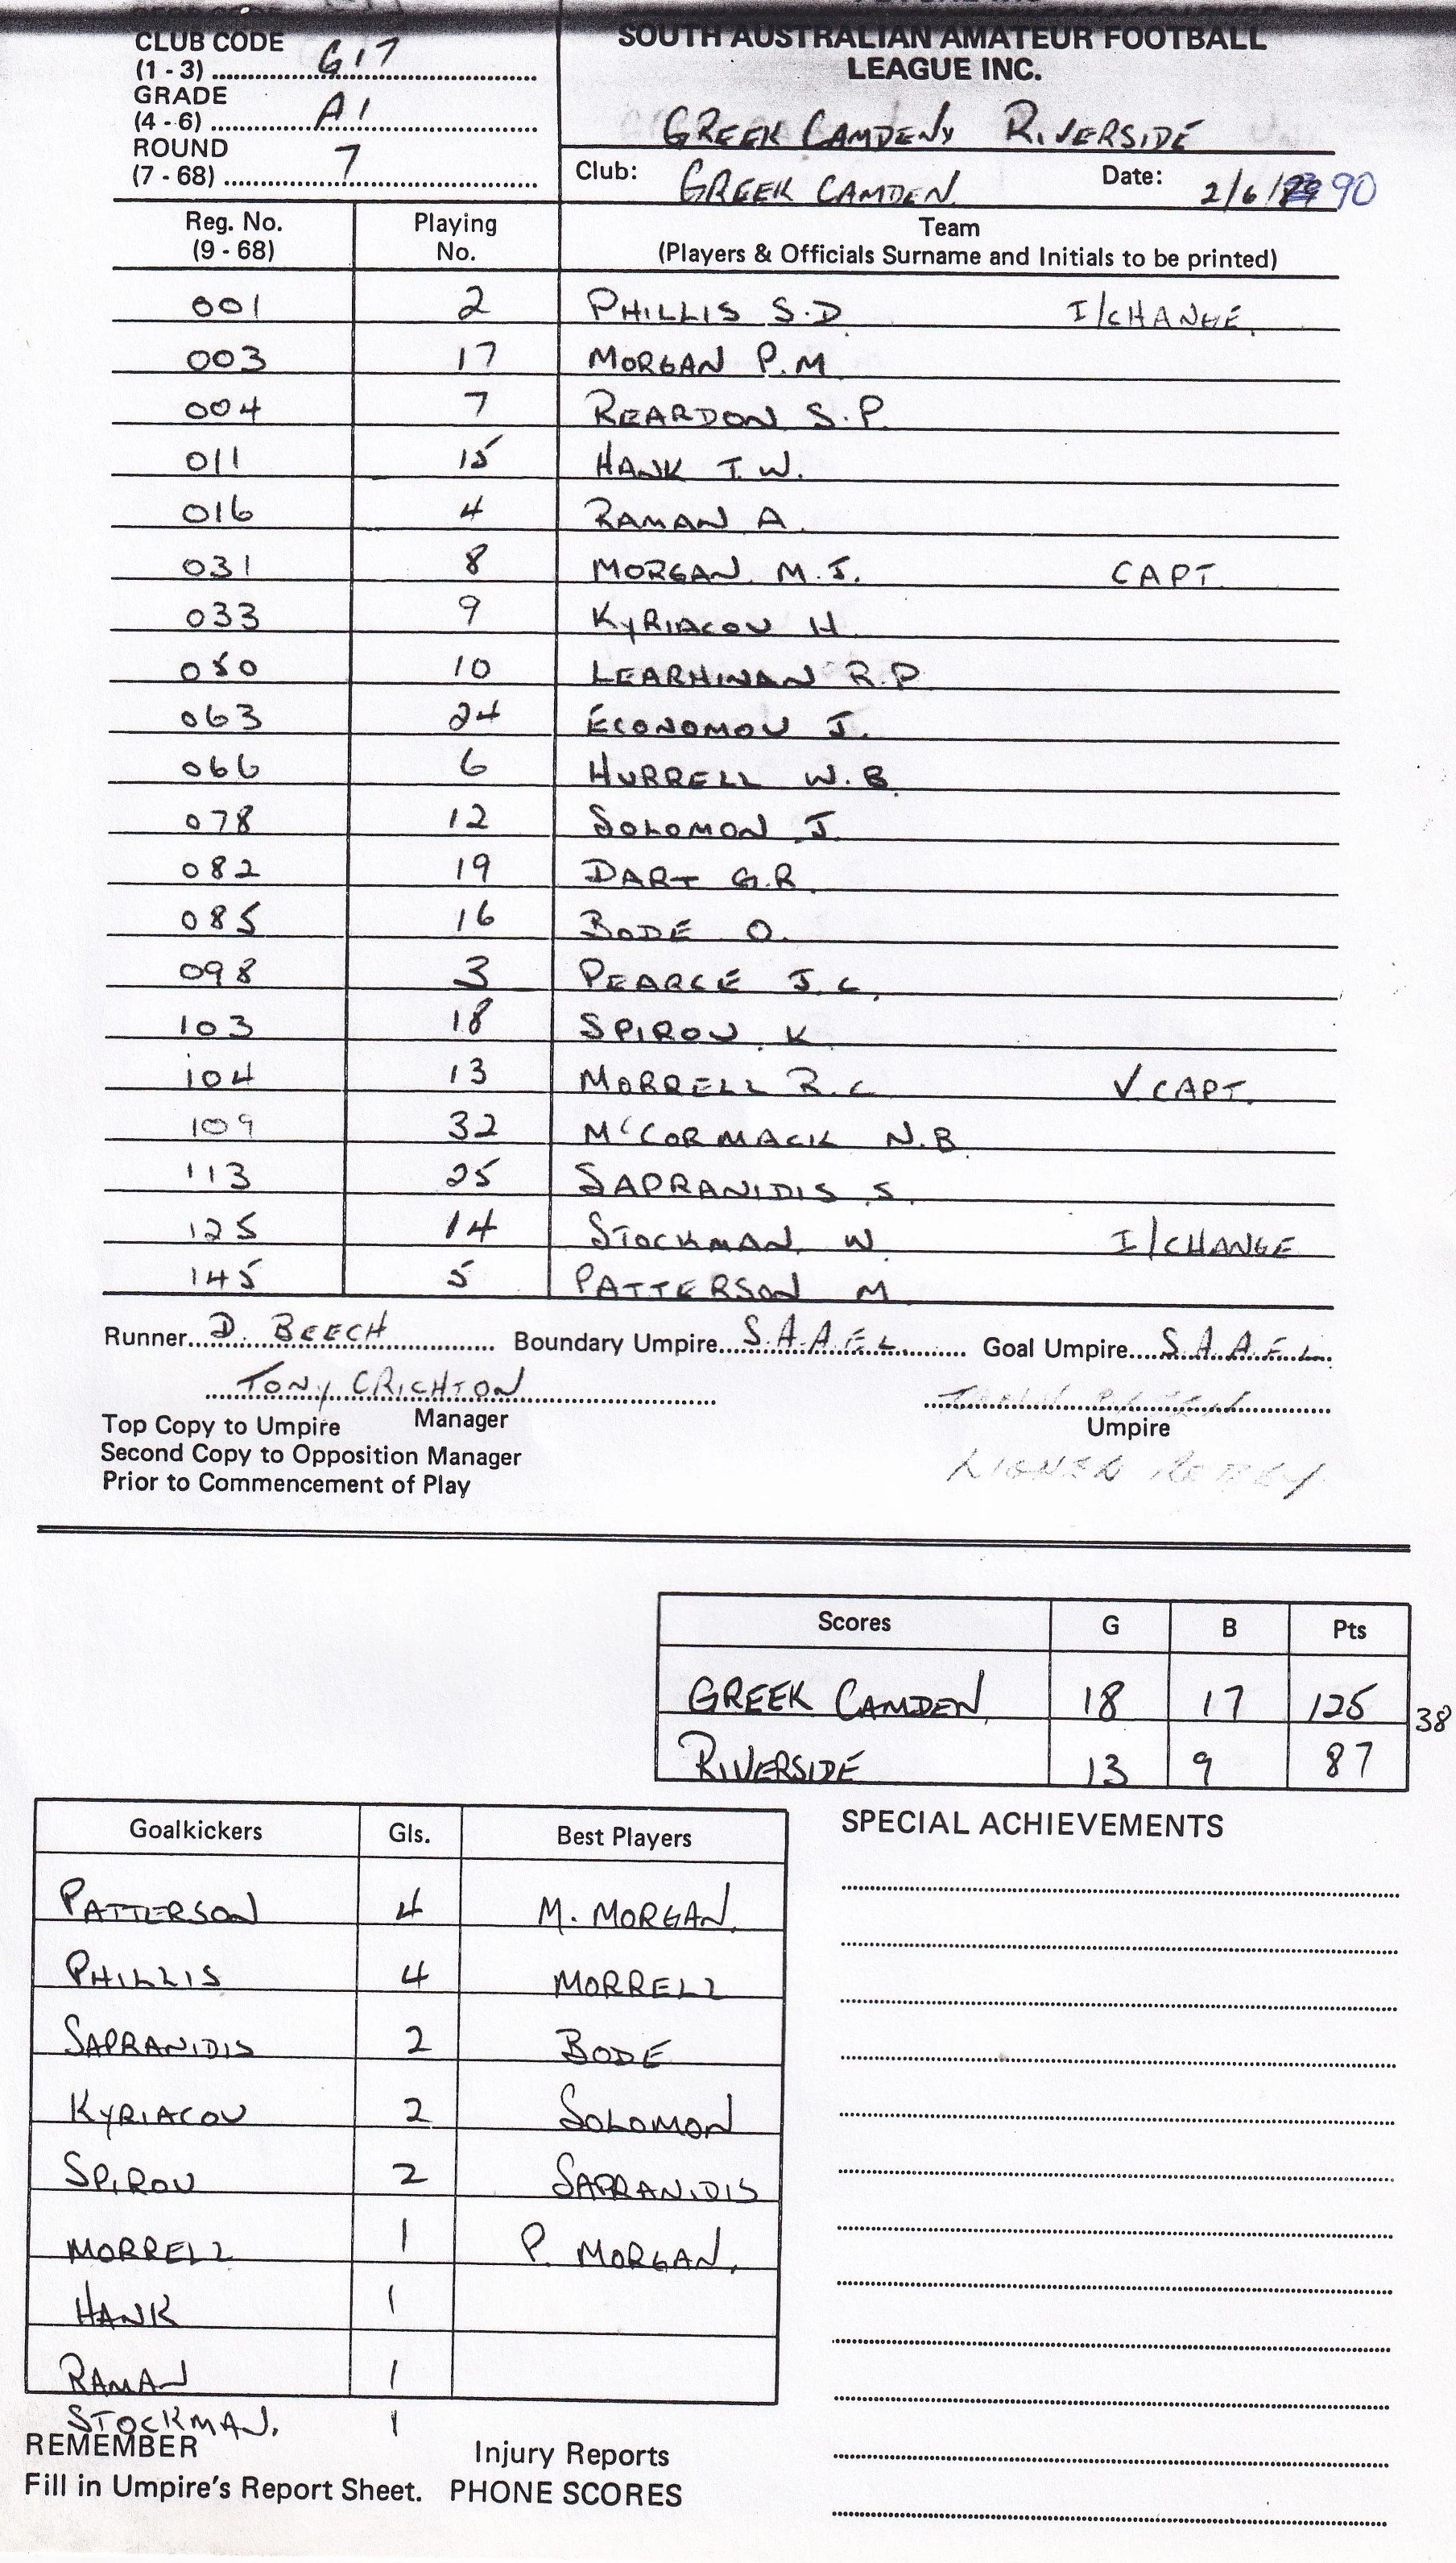 CLUB CODE
(1 - 3) G17
GRADE
(4 - 6) A1
ROUND
(7 - 68) 7
SOUTH AUSTRALIAN AMATEUR FOOTBALL
LEAGUE INC.
GREEK CAMDEN v RIVERSIDE
Club: GREEK CAMDEN Date: 2/6/90
Reg. No. Playing Team
(9 - 68) No. (Players & Officials Surname and Initials to be printed)
001 2 PHILLIS S.D I/CHANGE
003 17 MORGAN P.M
004 7 REARDON S.P.
011 15 HANK T.W.
016 4 RAMAN A.
031 8 MORGAN M.J. CAPT.
033 9 KYRIACOU H
050 10 LEARHINAN R.P
063 24 ECONOMOU J.
066 6 HURRELL W.B.
078 12 SOLOMON J.
082 19 DART G.R.
085 16 BODE O.
098 3 PEARCE J.C.
103 18 SPIROU K
104 13 MORRELL R.C V CAPT.
109 32 McCORMACK N.B
113 25 SAPRANIDIS S.
125 14 STOCKMAN W I/CHANGE
145 5 PATTERSON M
Runner D. BEECH Boundary Umpire S.A.A.F.L. Goal Umpire S.A.A.F.L.
TONY CRICHTON
Manager
Umpire
Top Copy to Umpire
Second Copy to Opposition Manager
Prior to Commencement of Play
Scores G B Pts
GREEK CAMDEN 18 17 125 38
RIVERSIDE 13 9 87
Goalkickers Gls. Best Players
PATTERSON 4 M. MORGAN.
PHILLIS 4 MORRELL
SAPRANIDIS 2 BODE
KYRIACOU 2 SOLOMON
SPIROU 2 SAPRANIDIS
MORRELL 1 P. MORGAN.
HANK 1
RAMAN 1
STOCKMAN. 1
SPECIAL ACHIEVEMENTS
REMEMBER Injury Reports
Fill in Umpire's Report Sheet. PHONE SCORES